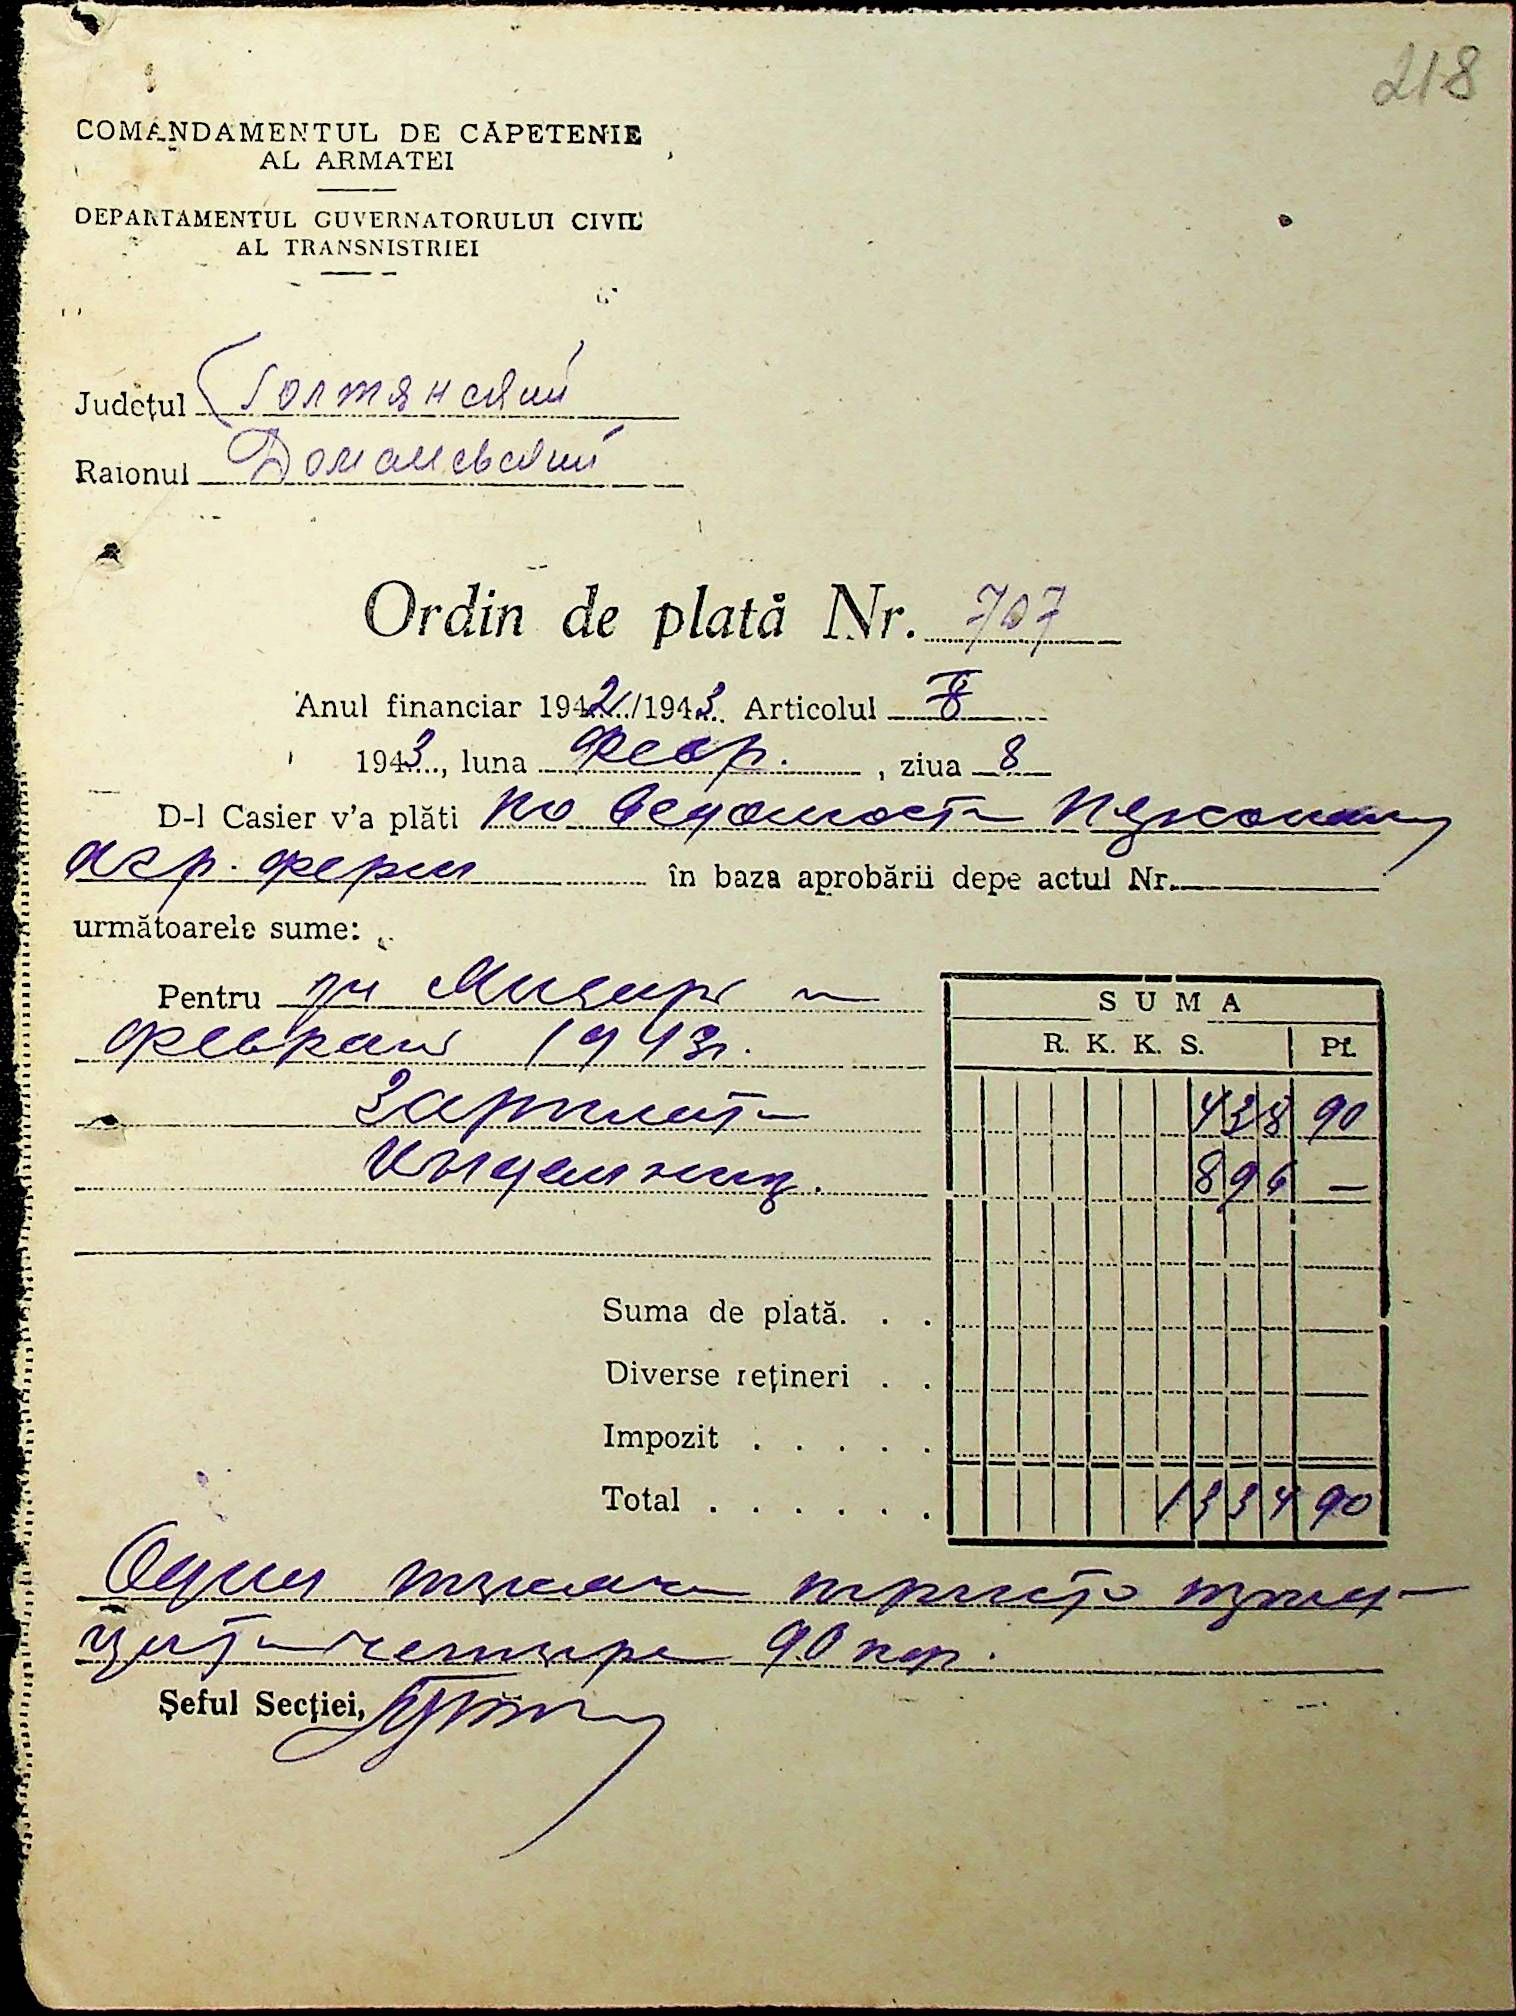 218
COMANDAMENTUL DE CĂPETENIE
AL ARMATEI
DEPARTAMENTUL GUVERNATORULUI CIVIL
AL TRANSNISTRIEI
Județul Голтянский
Raionul Доманевский
Ordin de plată Nr. 707
Anul financiar 1942/1943 Articolul
1943, luna Февр. , ziua 8
D-l Casier v'a plăti по ведомости
агр. ферм în baza aprobării depe actul Nr.
următoarele sume:
Pentru за Январь и
S U M A
февраль 1943г.
R. K. K. S. Pf.
Зарплаты 438 90
Индемниз. 896 —
Suma de plată. . .
Diverse rețineri . .
Impozit . . . . .
Total . . . . . . 1334 90
Один тысяча триста трид-
цать четыре 90 пф.
Șeful Secției,